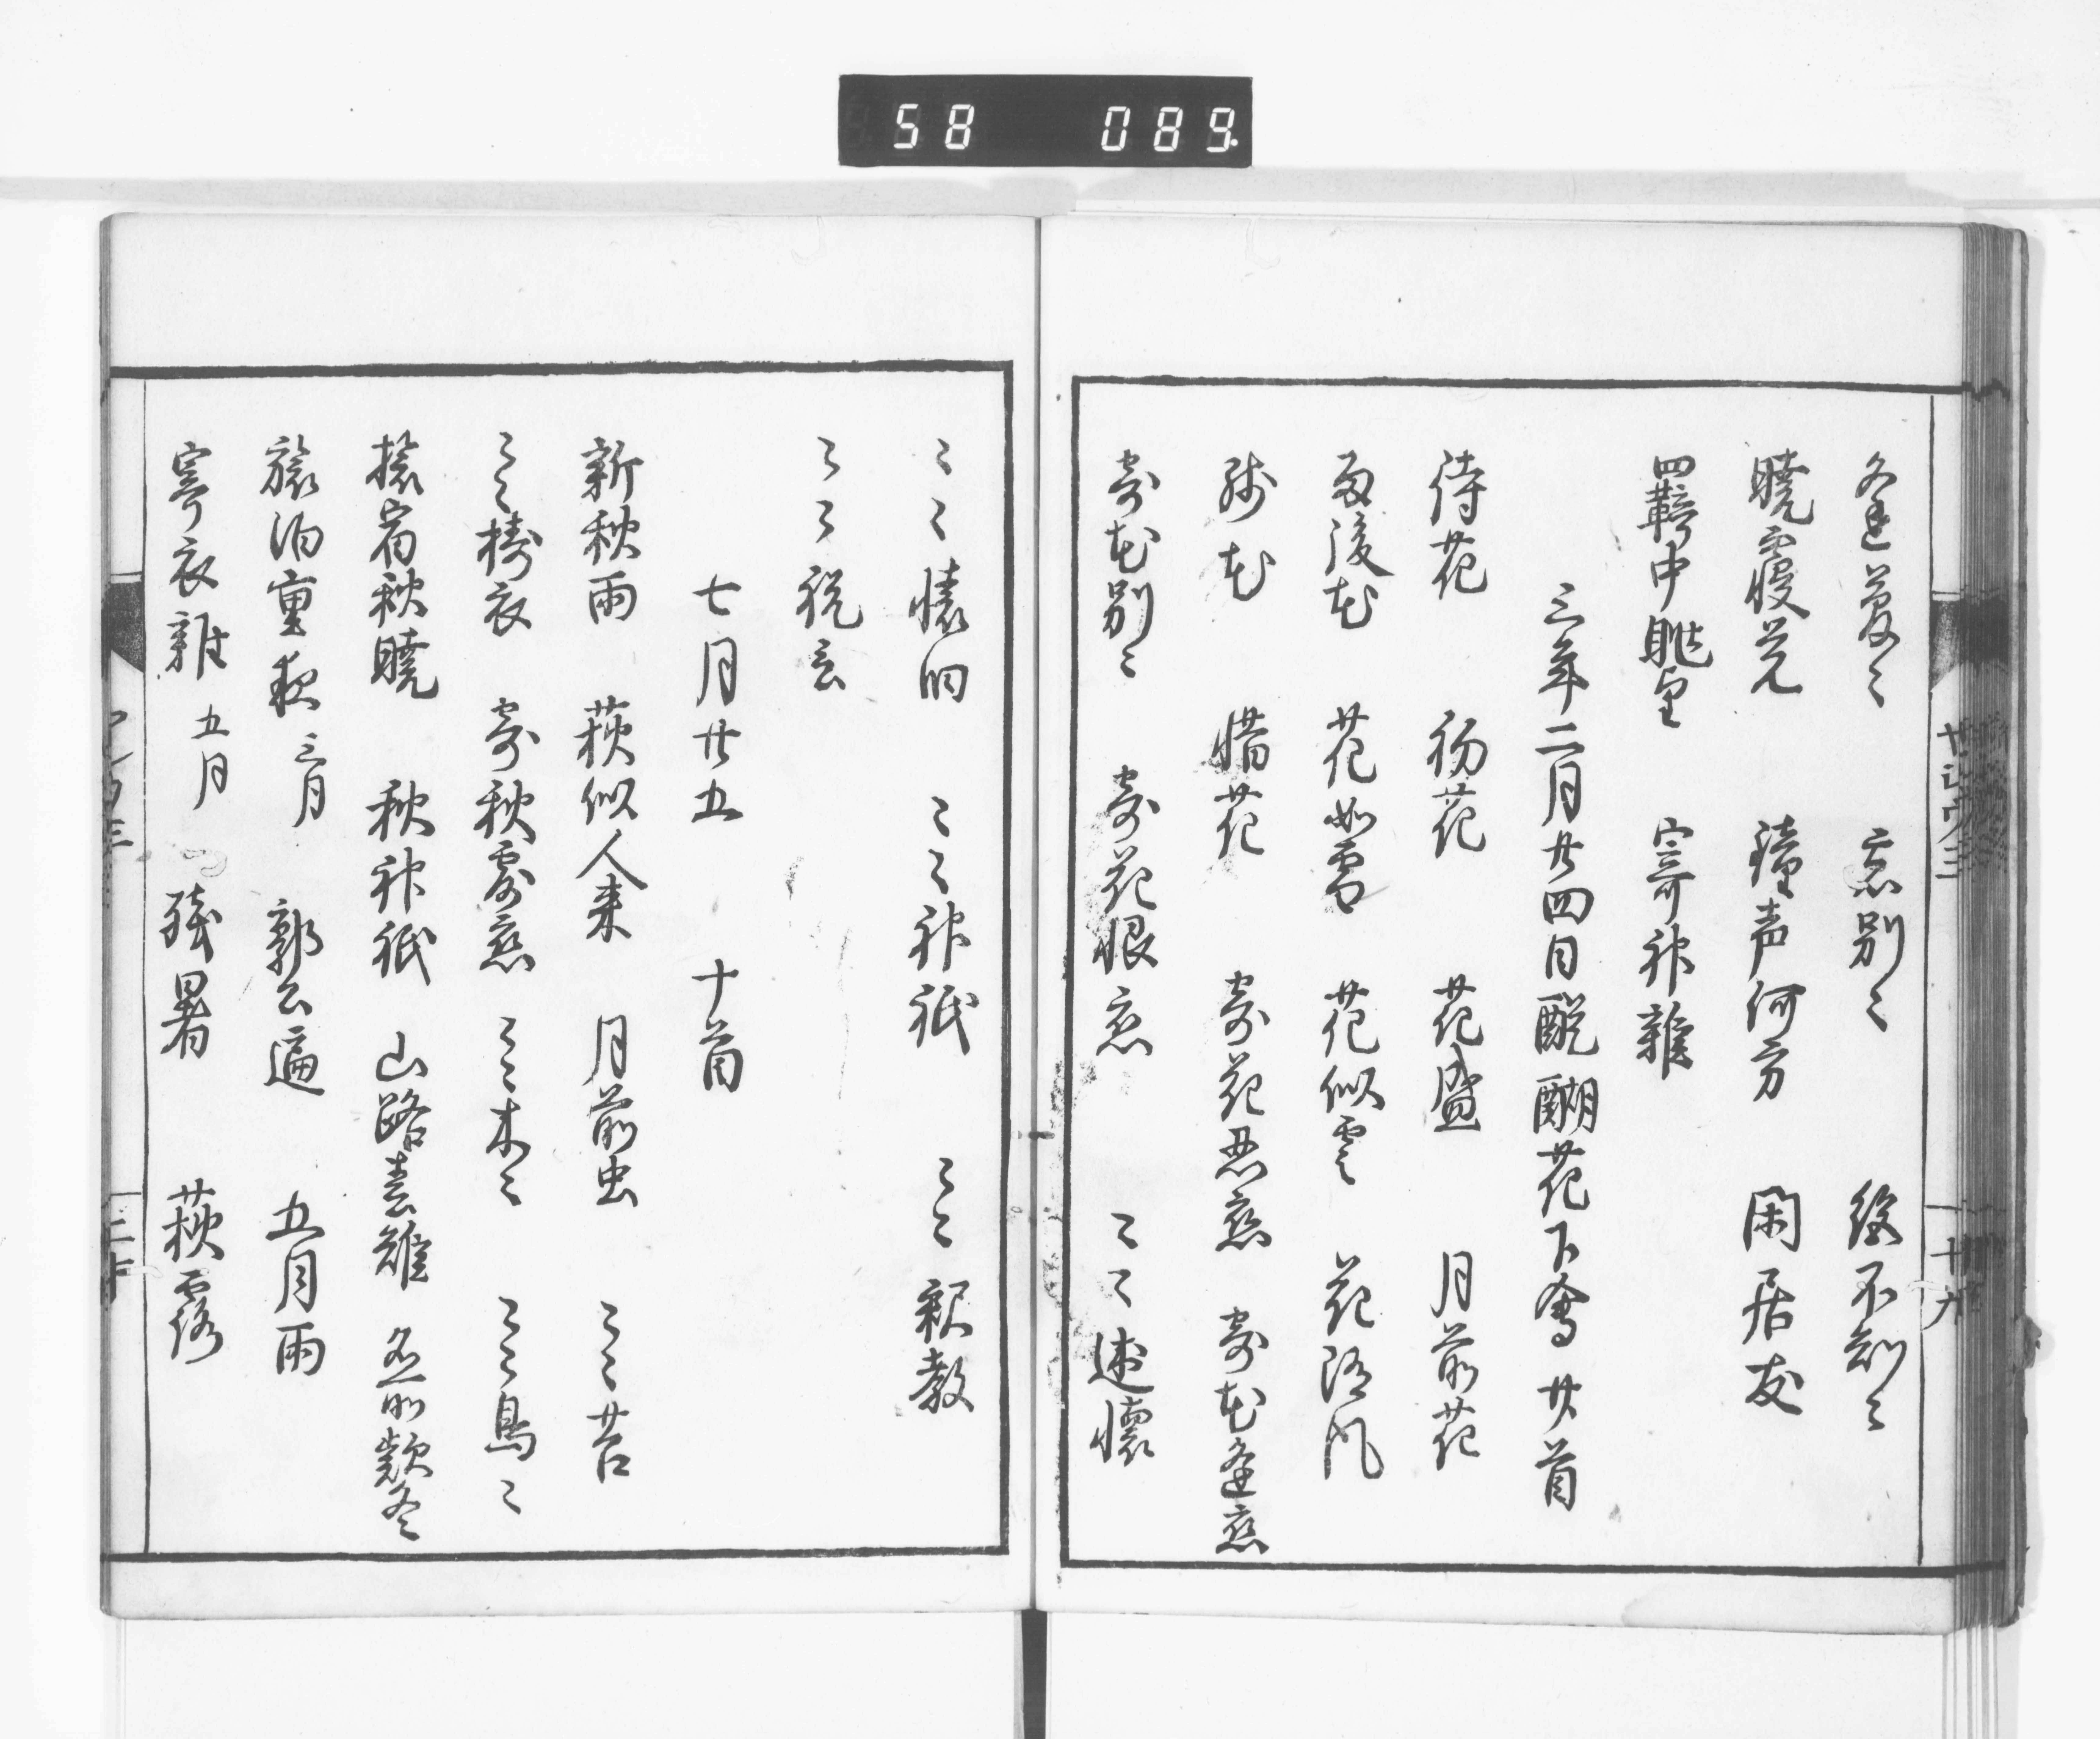 58 089
逢夢〻 忘別〻 終不知〻
暁寝覚 鐘声何方 閑居友
羈中眺望 寄神雑
三年二月廿四日醍醐花下會廿首
待花 初花 花盛 月前花
雨後花 花如雪 花似雲 花随風
残花 惜花 寄花忍恋 寄花逢恋
寄花別〻 寄花恨恋 〻〻述懐
〻〻懐旧 〻〻神祇 〻〻釈教
〻〻祝言
七月廿五 十首
新秋雨 荻似人来 月前虫 〻〻苔
〻〻擣衣 寄秋露恋 〻〻木〻 〻〻鳥〻
旅宿秋暁 秋神祇 山路春雉 名所款冬
旅泊重夜 三月 郭公遍 五月雨
寄衣雑 五月 残暑 荻露